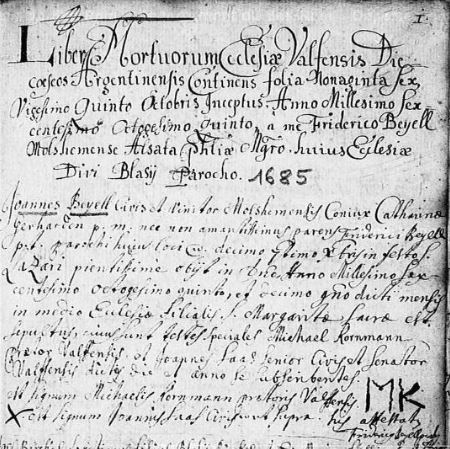 1.
Liber Mortuorum Ecclesiæ Valfensis Die
cœseos Argentinensis Continens folia Nonaginta Sex
Vigesimo Quinto Octobris Inceptus Anno Millesimo Sex
centesimo Octogesimo Quinto, à me Friderico Beyell
Molshemense Alsata Phliæ Mgro huius Ecclesiæ
Divi Blasÿ Parocho. 1685
Joannes Beyell Civis et Vinitor Molshemensis Coniux Catharinæ
p. m. nec non amantissimus parens Friderici Beyell
p. t. parochi huius loci decimo in festo S.
Lazari pientissime obijt in Dno Anno Millesimo Sex
centesimo octogesimo quinto, et decimo dicti mensis
in medio Ecclesiæ filialis S. Margaritæ est
sepultus, cuius sunt testes speciales Michael Kornmann
Prætor Valfensis, et Joannes Saas senior Civis et Senator
Valfensis die et anno se subscribentes.
est signum Michaelis Kornmann prætoris Valfensis MK
X est signum Joannis Saas Civis ut supra his attestatur